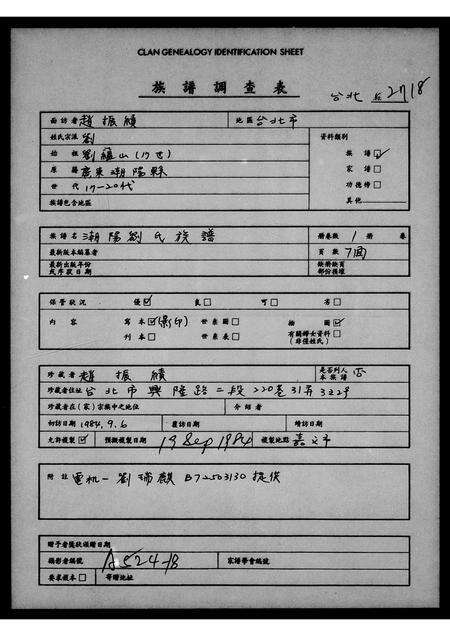 CLAN GENEALOGY IDENTIFICATION SHEET
族譜調查表
台北 丘2718
面訪者 趙振績 地區 台北市
姓氏宗派 劉 資料類別
始祖 劉龍山(17世) 族譜☑
原籍 廣東潮陽縣 家譜□
世代 17-20代 功德榜□
族譜包含地區 其他
族譜名 潮陽劉氏族譜 冊卷數 1 冊 卷
最新版本編纂者 頁數 7面
最新出版年份或序跋日期 缺漏破頁部份損壞
保管狀況 優☑ 良□ 可□ 劣□
內容 寫本☑(影印) 世系圖□ 插圖☑
刊本□ 世系表□ 有關婦女資料□(非僅姓氏)
珍藏者 趙振績 是否列入本族譜 否
珍藏者住址 台北市興隆路二段220巷31弄3之2號
珍藏者在(家)宗族中之地位 介紹者
初訪日期 1984.9.6 覆訪日期 續訪日期
允許複製☑ 預擬複製日期 19 Sep 1984 複製地點 嘉文市
附註 電机一 劉瑞麒 B72503130 提供
贈予者獎狀頒贈日期
攝影者編號 A524-18 家譜學會編號
要求複本□ 寄贈地址